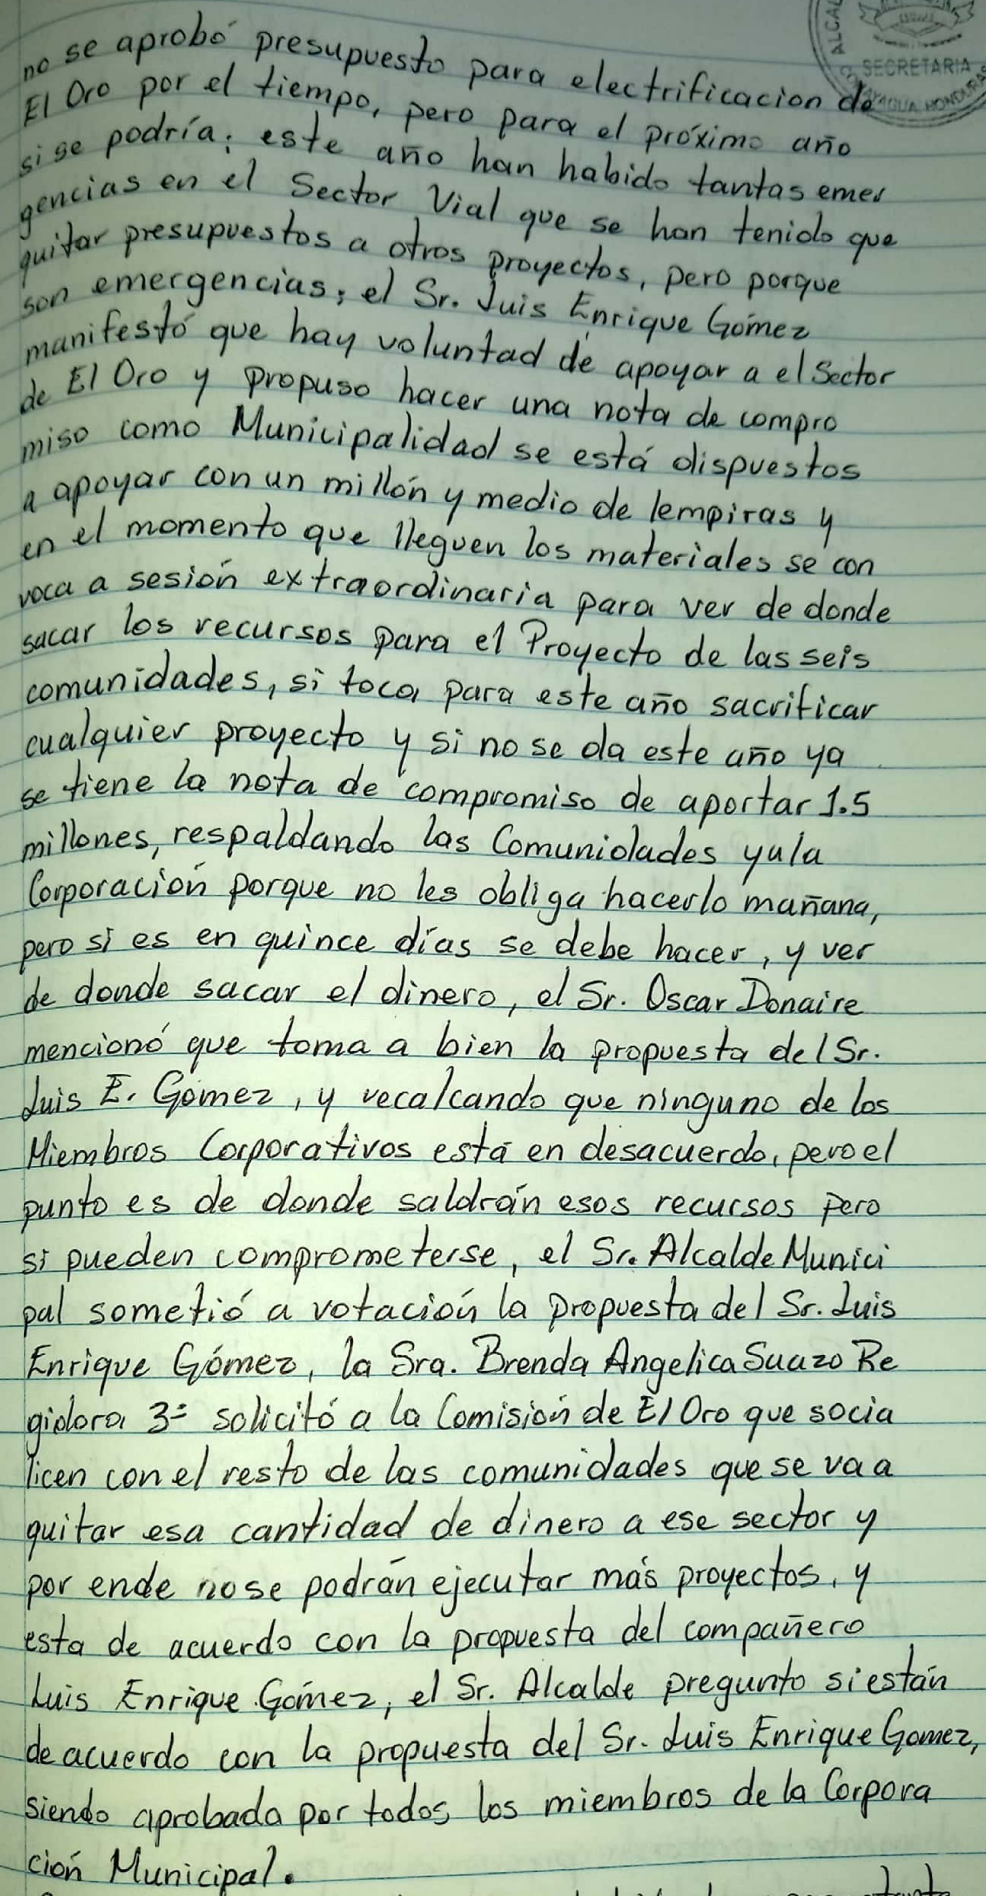 ALCAL
SECRETARIA
HONDURAS
no se aprobó presupuesto para electrificacion de
El Oro por el tiempo, pero para el próximo año
si se podría; este año han habido tantas emer
gencias en el Sector Vial que se han tenido que
quitar presupuestos a otros proyectos, pero porque
son emergencias; el Sr. Luis Enrique Gómez
manifestó que hay voluntad de apoyar a el Sector
de El Oro y propuso hacer una nota de compro
miso como Municipalidad se está dispuestos
a apoyar con un millón y medio de lempiras y
en el momento que lleguen los materiales se con
voca a sesión extraordinaria para ver de donde
sacar los recursos para el Proyecto de las seis
comunidades, si toca para este año sacrificar
cualquier proyecto y si no se da este año ya
se tiene la nota de compromiso de aportar 1.5
millones, respaldando las Comunidades y a la
Corporación porque no les obliga hacerlo mañana,
pero si es en quince días se debe hacer, y ver
de donde sacar el dinero, el Sr. Oscar Donaire
mencionó que toma a bien la propuesta del Sr.
Luis E. Gómez, y recalcando que ninguno de los
Miembros Corporativos está en desacuerdo, pero el
punto es de donde saldrán esos recursos pero
si pueden comprometerse, el Sr. Alcalde Munici
pal sometió a votación la propuesta del Sr. Luis
Enrique Gómez, la Sra. Brenda Angelica Suazo Re
gidora 3ª solicitó a la Comisión de El Oro que socia
licen con el resto de las comunidades que se va a
quitar esa cantidad de dinero a ese sector y
por ende no se podrán ejecutar más proyectos, y
esta de acuerdo con la propuesta del compañero
Luis Enrique Gómez, el Sr. Alcalde pregunto si están
de acuerdo con la propuesta del Sr. Luis Enrique Gomez,
siendo aprobada por todos los miembros de la Corpora
ción Municipal.